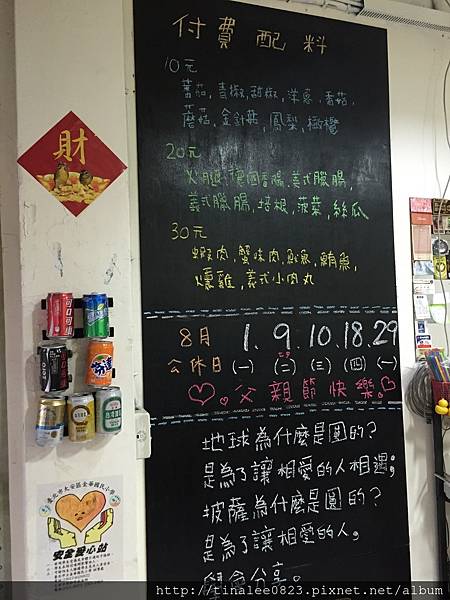 付費配料
10元
蕃茄,青椒,甜椒,洋蔥,香菇,
蘑菇,金針菇,鳳梨,橄欖
20元
火腿,德國香腸,美式臘腸,
義式臘腸,培根,菠菜,絲瓜
30元
蝦肉,蟹味肉,魷魚,鮪魚,
燻雞,義式小肉丸
8月 1. 9. 10. 18. 29
公休日 (一) (二) (三) (四) (一)
父親節快樂
地球為什麼是圓的?
是為了讓相愛的人相遇;
披薩為什麼是圓的?
是為了讓相愛的人,
學會分享。
財
臺北市大安區金華國民小學
安全愛心站
http://tinalee0823.pixnet.net/album